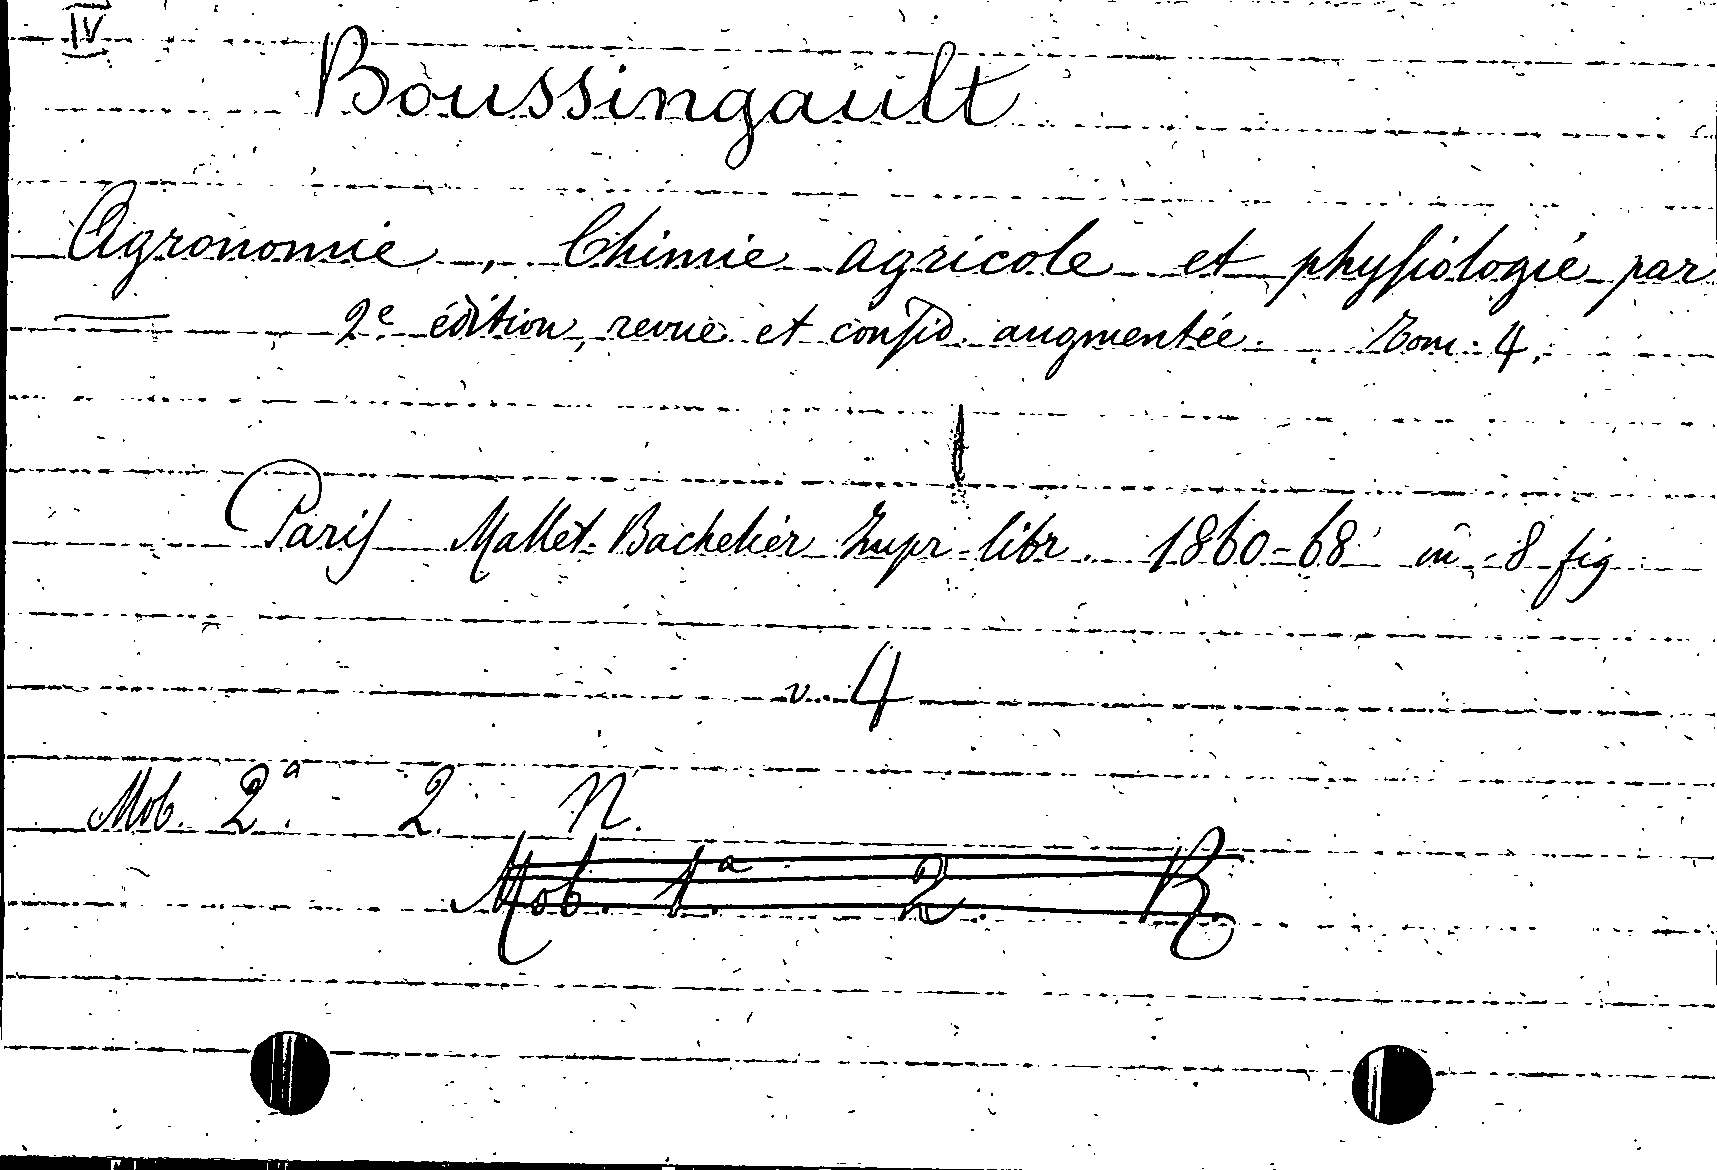 IV
Boussingault
Agronomie, Chimie agricole et physiologie par
2e édition, revue et consid. augmentée. Tom. 4,
Paris Mallet-Bachelier Impr-libr. 1860-68 in-8 fig
v. 4
Mob. 2a. 2. N.
Mob. 1a. 2. R.